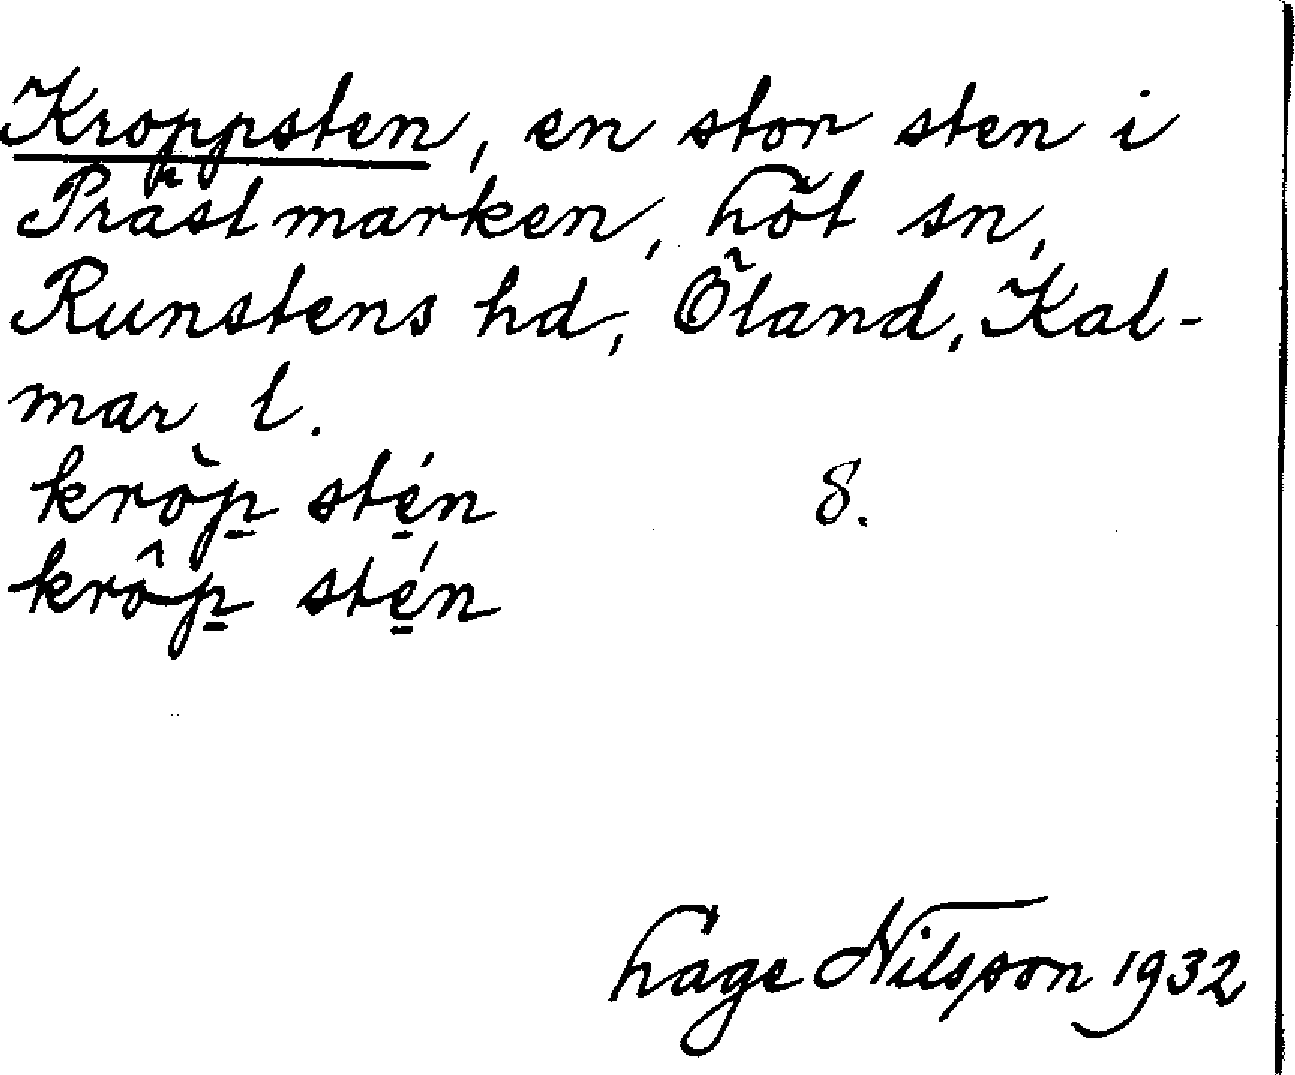 Kroppsten, en stor sten i
Prästmarken, Löt sn,
Runstens hd, Öland, Kal-
mar l.
kròp stén 8.
krôp stén
Lage Nilsson 1932